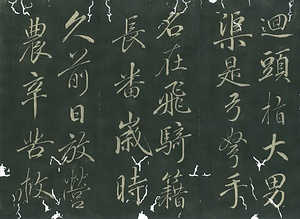 迴頭指大男
渠是弓弩手
名在飛騎籍
長番歲時
久前日放營
農辛苦救